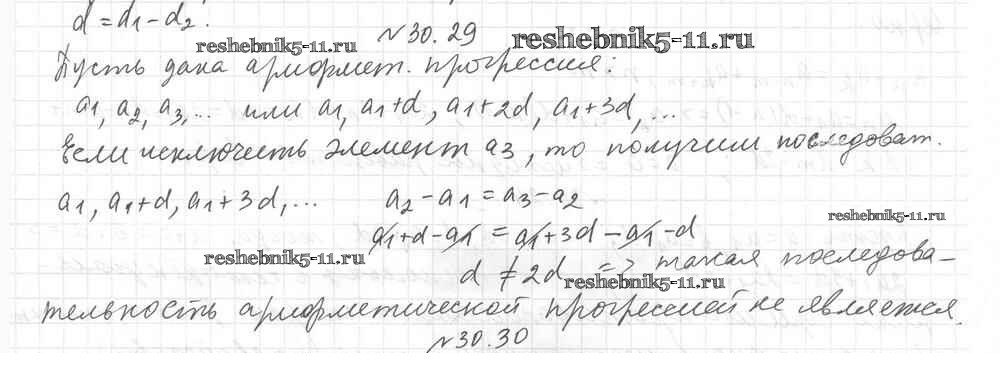 d = d1 - d2.
№30.29
reshebnik5-11.ru reshebnik5-11.ru
Пусть дана арифмет. прогрессия:
a1, a2, a3,... или a1, a1+d, a1+2d, a1+3d,...
Если исключить элемент a3, то получим последоват.
a1, a1+d, a1+3d,... a2-a1 = a3-a2
reshebnik5-11.ru
a1+d-a1 = a1+3d-a1-d
reshebnik5-11.ru
d ≠ 2d => такая последова-
reshebnik5-11.ru
тельность арифметической прогрессией не является.
№30.30